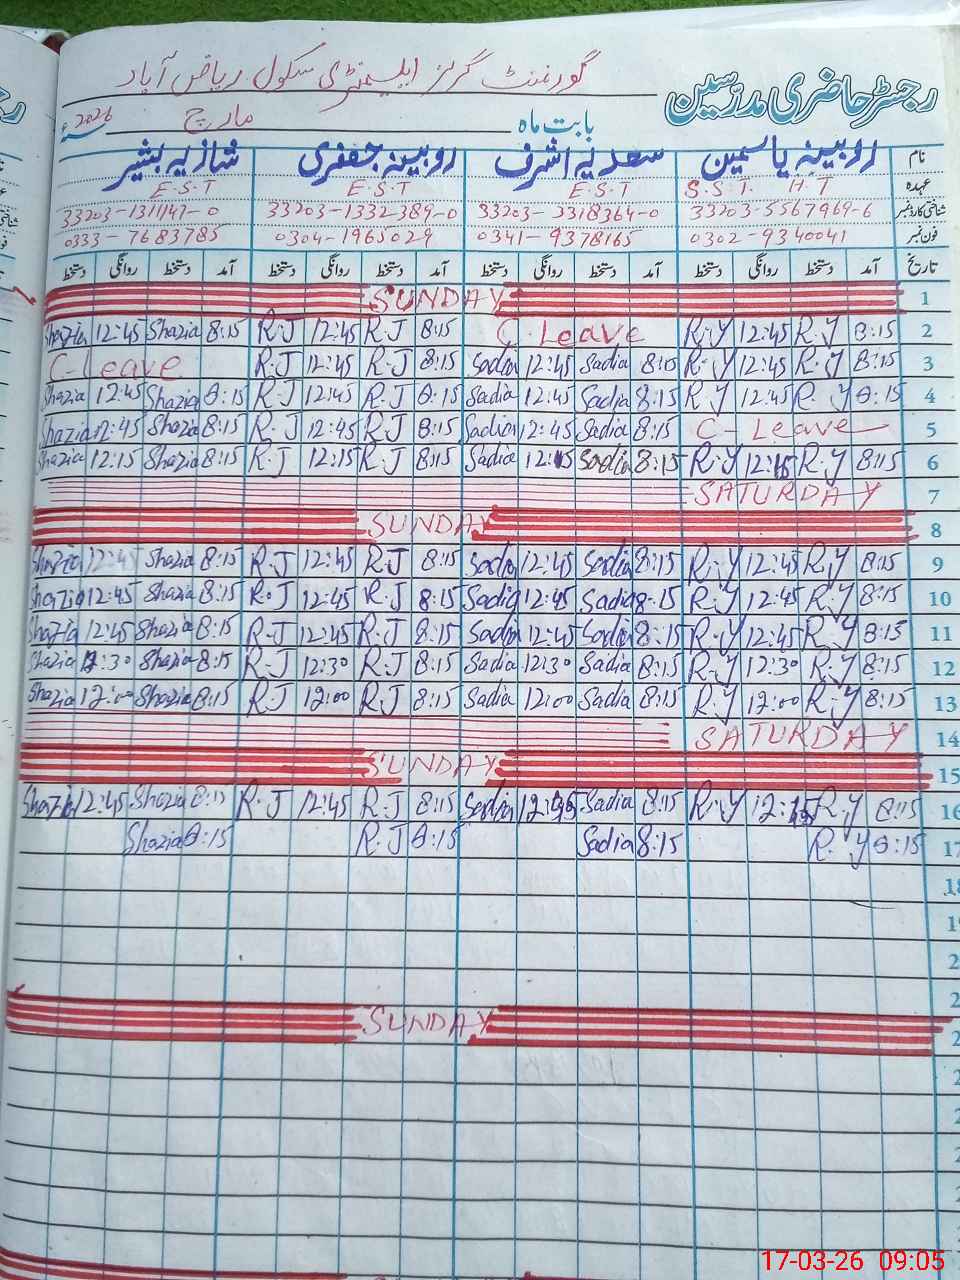 گورنمنٹ گرلز ایلیمنٹری سکول ریاض آباد
رجسٹر حاضری مدرسین
بابت ماہ مارچ 2026ء
نام روبینہ یاسمین سعدیہ اشرف روبینہ جعفری شازیہ بشیر
عہدہ S.S.T. H T E.S.T E.S.T E.S.T
شناختی کارڈ نمبر 33203-5567969-6 33203-2318364-0 33203-1332389-0 33203-1311147-0
فون نمبر 0302-9340041 0341-9378165 0304-1965029 0333-7683785
تاریخ آمد دستخط روانگی دستخط آمد دستخط روانگی دستخط آمد دستخط روانگی دستخط آمد دستخط روانگی دستخط
SUNDAY 1
Shazia 12:45 Shazia 8:15 R.J 12:45 R.J 8:15 C-Leave R.Y 12:45 R.Y 8:15 2
C-Leave R.J 12:45 R.J 8:15 Sadia 12:45 Sadia 8:15 R.Y 12:45 R.Y 8:15 3
Shazia 12:45 Shazia 8:15 R.J 12:45 R.J 8:15 Sadia 12:45 Sadia 8:15 R.Y 12:45 R.Y 8:15 4
Shazia 12:45 Shazia 8:15 R.J 12:45 R.J 8:15 Sadia 12:45 Sadia 8:15 C-Leave 5
Shazia 12:15 Shazia 8:15 R.J 12:15 R.J 8:15 Sadia 12:15 Sadia 8:15 R.Y 12:15 R.Y 8:15 6
SATURDAY 7
SUNDAY 8
Shazia 12:45 Shazia 8:15 R.J 12:45 R.J 8:15 Sadia 12:45 Sadia 8:15 R.Y 12:45 R.Y 8:15 9
Shazia 12:45 Shazia 8:15 R.J 12:45 R.J 8:15 Sadia 12:45 Sadia 8:15 R.Y 12:45 R.Y 8:15 10
Shazia 12:45 Shazia 8:15 R.J 12:45 R.J 8:15 Sadia 12:45 Sadia 8:15 R.Y 12:45 R.Y 8:15 11
Shazia 12:30 Shazia 8:15 R.J 12:30 R.J 8:15 Sadia 12:30 Sadia 8:15 R.Y 12:30 R.Y 8:15 12
Shazia 12:00 Shazia 8:15 R.J 12:00 R.J 8:15 Sadia 12:00 Sadia 8:15 R.Y 12:00 R.Y 8:15 13
SATURDAY 14
SUNDAY 15
Shazia 12:45 Shazia 8:15 R.J 12:45 R.J 8:15 Sadia 12:45 Sadia 8:15 R.Y 12:45 R.Y 8:15 16
Shazia 8:15 R.J 8:15 Sadia 8:15 R.Y 8:15 17
18
SUNDAY
17-03-26 09:05